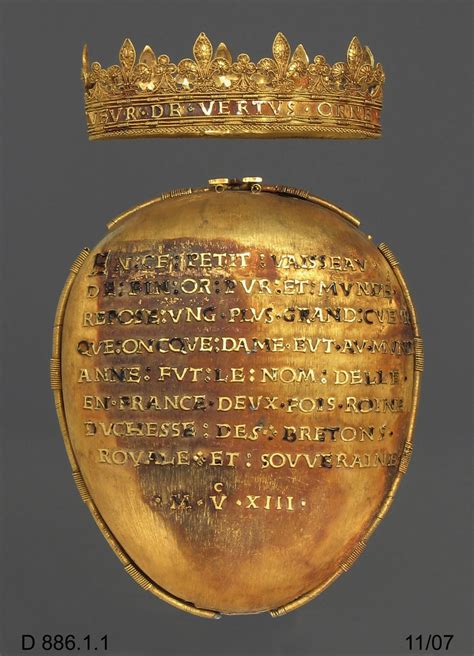 EVR · DE · VERTVS · ORNE
EN : CE : PETIT : VAISSEAV
DE : FIN : OR : PVR : ET : MVNDE
REPOSE : VNG · PLVS · GRAND : CVE
QVE : ONCQVE : DAME · EVT · AV · MVN
ANNE : FVT : LE : NOM : DELLE
EN · FRANCE · DEVX · FOIS · ROINE
DVCHESSE : DES · BRETONS ·
ROYALE · ET : SOVVERAINE
C
· M · V · XIII ·
D 886.1.1
11/07